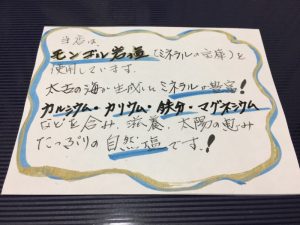 当店は、
モンゴル岩塩(ミネラルの宝庫)を
使用しています。
太古の海が生成したミネラルが豊富!
カルシウム・カリウム・鉄分・マグネシウム
などを含み、滋養、太陽の恵み
たっぷりの自然塩です。!